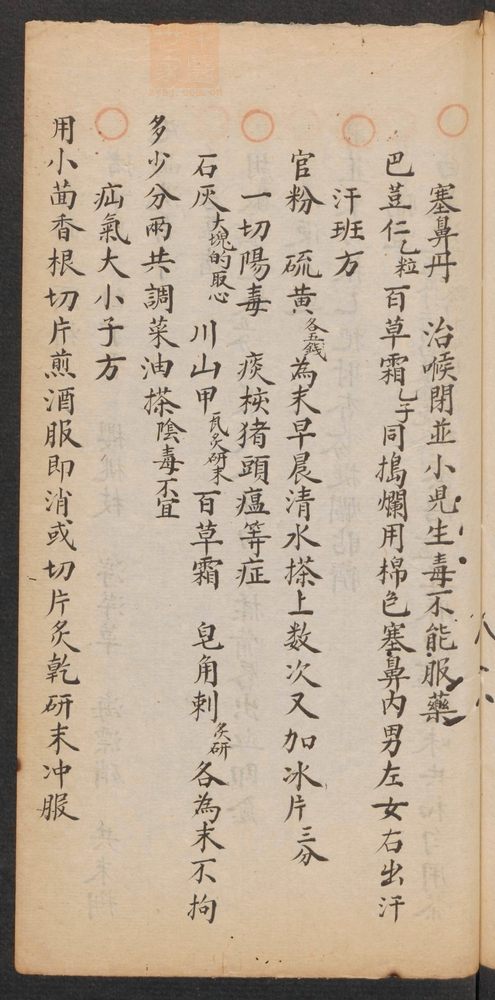 塞鼻丹　治喉閉並小児生毒不能服藥
巴荳仁乙粒百草霜乙子同搗爛用棉包塞鼻内男左女右出汗
汗班方
官粉　硫黄各五錢為末早晨清水搽上数次又加冰片三分
一切陽毒　痰核猪頭瘟等症
石灰大塊的取心　川山甲瓦炙研末百草霜　皂角刺炙研各為末不拘
多少分兩共調菜油搽陰毒不宜
疝氣大小子方
用小茴香根切片煎酒服即消或切片炙乾研末冲服